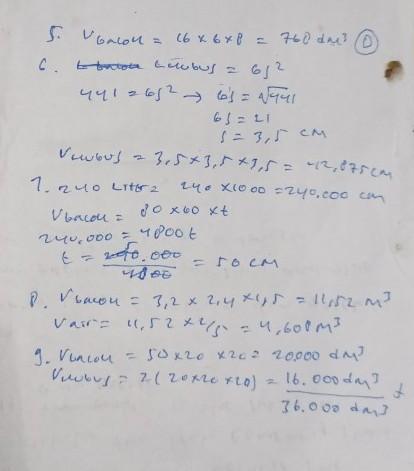 5. Vbalok = 16 x 6 x 8 = 768 dm³ (D)
6. Lkubus = 6s²
441 = 6s² → 6s = √441
6s = 21
s = 3,5 cm
Vkubus = 3,5 x 3,5 x 3,5 = 42,875 cm
7. 240 Liter = 240 x 1000 = 240.000 cm
Vbalok = 80 x 60 x t
240.000 = 4800 t
t = 240.000 / 4800 = 50 cm
8. Vbalok = 3,2 x 2,4 x 1,5 = 11,52 m³
Vair = 11,52 x 2/5 = 4,608 m³
9. Vbalok = 50 x 20 x 20 = 20000 dm³
Vkubus = 2(20 x 20 x 20) = 16.000 dm³ +
36.000 dm³